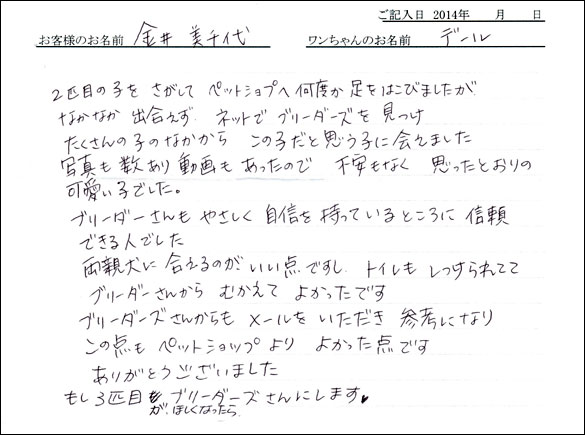 ご記入日 2014年 月 日
お客様のお名前 金井 美千代 ワンちゃんのお名前 デール
2匹目の子を さがして ペットショプへ 何度か 足をはこびましたが
なかなか 出合えず ネットで ブリーダーズを 見つけ
たくさんの子のなかから この子だと思う子に会えました
写真も 数あり 動画も あったので 不安もなく 思ったとおりの
可愛い子でした。
ブリーダーさんも やさしく 自信を 持っているところに 信頼
できる人でした
両親犬に 合えるのが いい点ですし トイレも しつけられてて
ブリーダーさんから むかえて よかったです
ブリーダーズさんからも メールを いただき 参考になり
この点も ペットショップより よかった点です
ありがとうございました
もし 3匹目 ブリーダーズさんにします
が、ほしくなったら